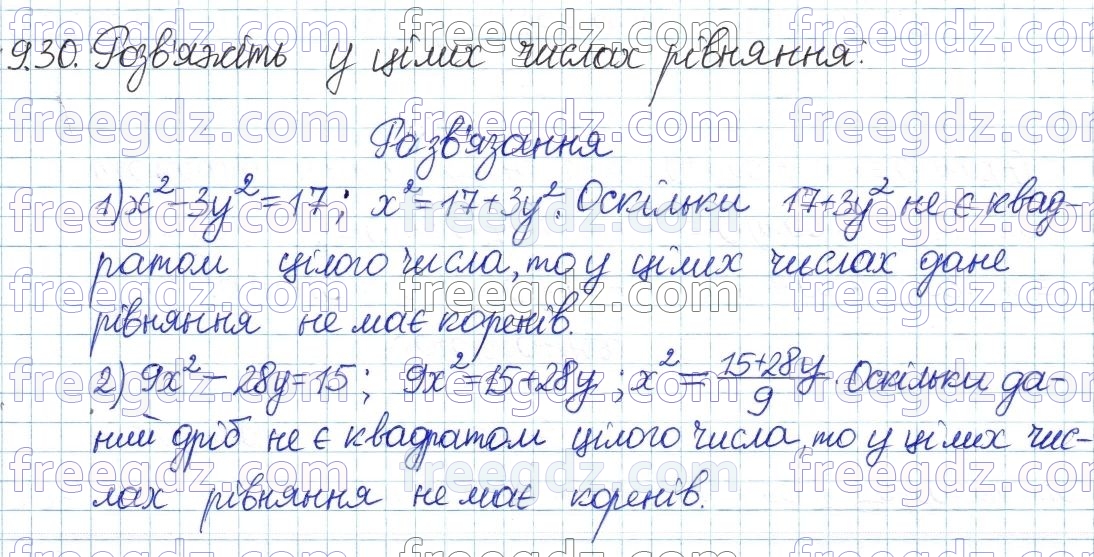 9.30. Розв'яжіть у цілих числах рівняння:
Розв'язання
1) x² - 3y² = 17; x² = 17 + 3y². Оскільки 17 + 3y² не є квад-
ратом цілого числа, то у цілих числах дане
рівняння не має коренів.
2) 9x² - 28y = 15; 9x² = 15 + 28y; x² = (15 + 28y)/9. Оскільки да-
ний дріб не є квадратом цілого числа, то у цілих чис-
лах рівняння не має коренів.
freegdz.com